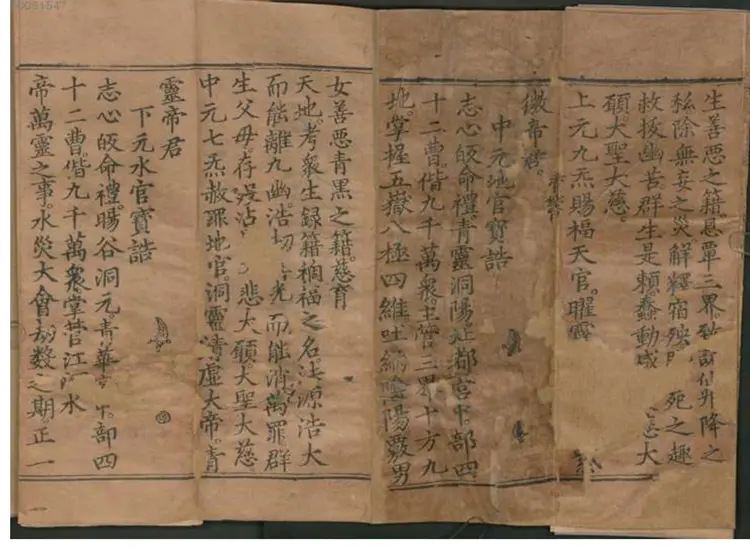 生善惡之籍恩覃三界致升降之
私除無妄之災解釋宿殃死之趣
救拔幽苦群生是賴。蠢動咸大
願大聖大慈。
上元九炁賜福天官。曜靈
微帝君。
中元地官寶誥
志心皈命禮。青靈洞陽北都宮中。部四
十二曹。偕九千萬衆。主管三界十方九
地。掌握五嶽八極四維吐納陰陽覈男
女善惡青黑之籍。慈育
天地。考衆生録籍禍福之名。法源浩大
而能離九幽。浩劫光而能消萬罪群
生父母存没沾悲大願大聖大慈
中元七炁赦罪地官。洞靈清虛大帝。青
靈帝君
下元水官寶誥
志心皈命禮暘谷洞元。青華中。部四
十二曹。偕九千萬衆。掌管江水
帝萬靈之事。水災大會劫數之期。正一